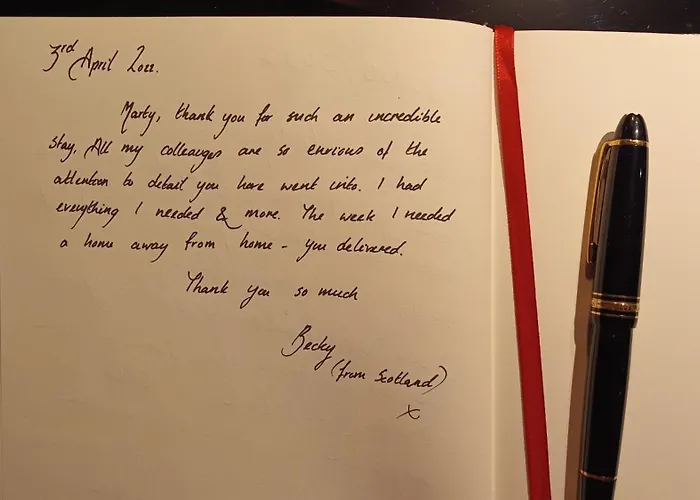 3rd April 2022.
Marty, thank you for such an incredible
stay. All my colleauges are so envious of the
attention to detail you have went into. I had
everything I needed & more. The week I needed
a home away from home - you delivered.
Thank you so much
Becky
(from Scotland)
x